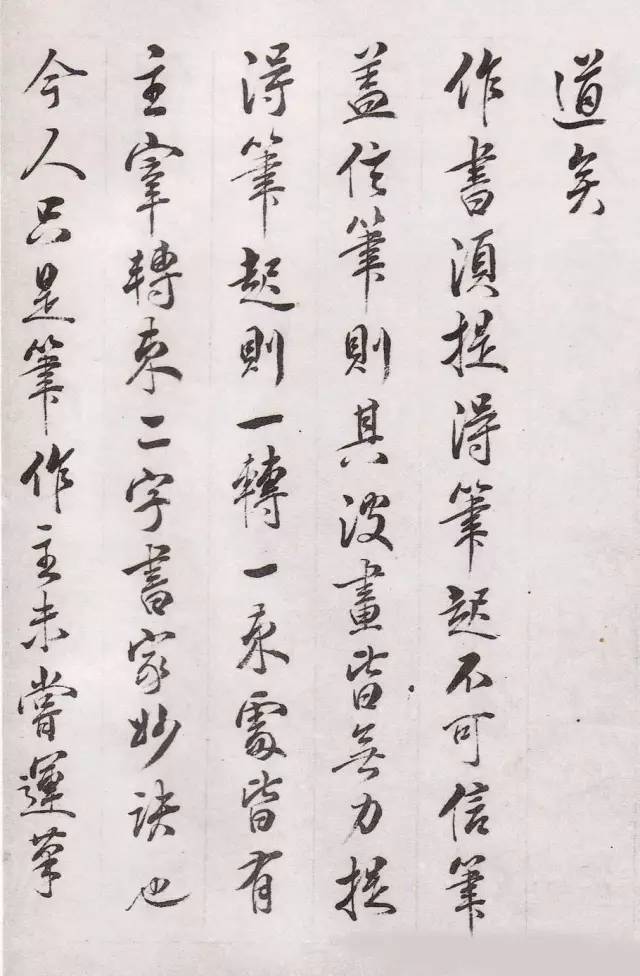 道矣
作書須提得筆起不可信筆
盖信筆則其波畫皆無力提
得筆起則一轉一束處皆有
主宰轉束二字書家妙訣也
今人只是筆作主未嘗運筆